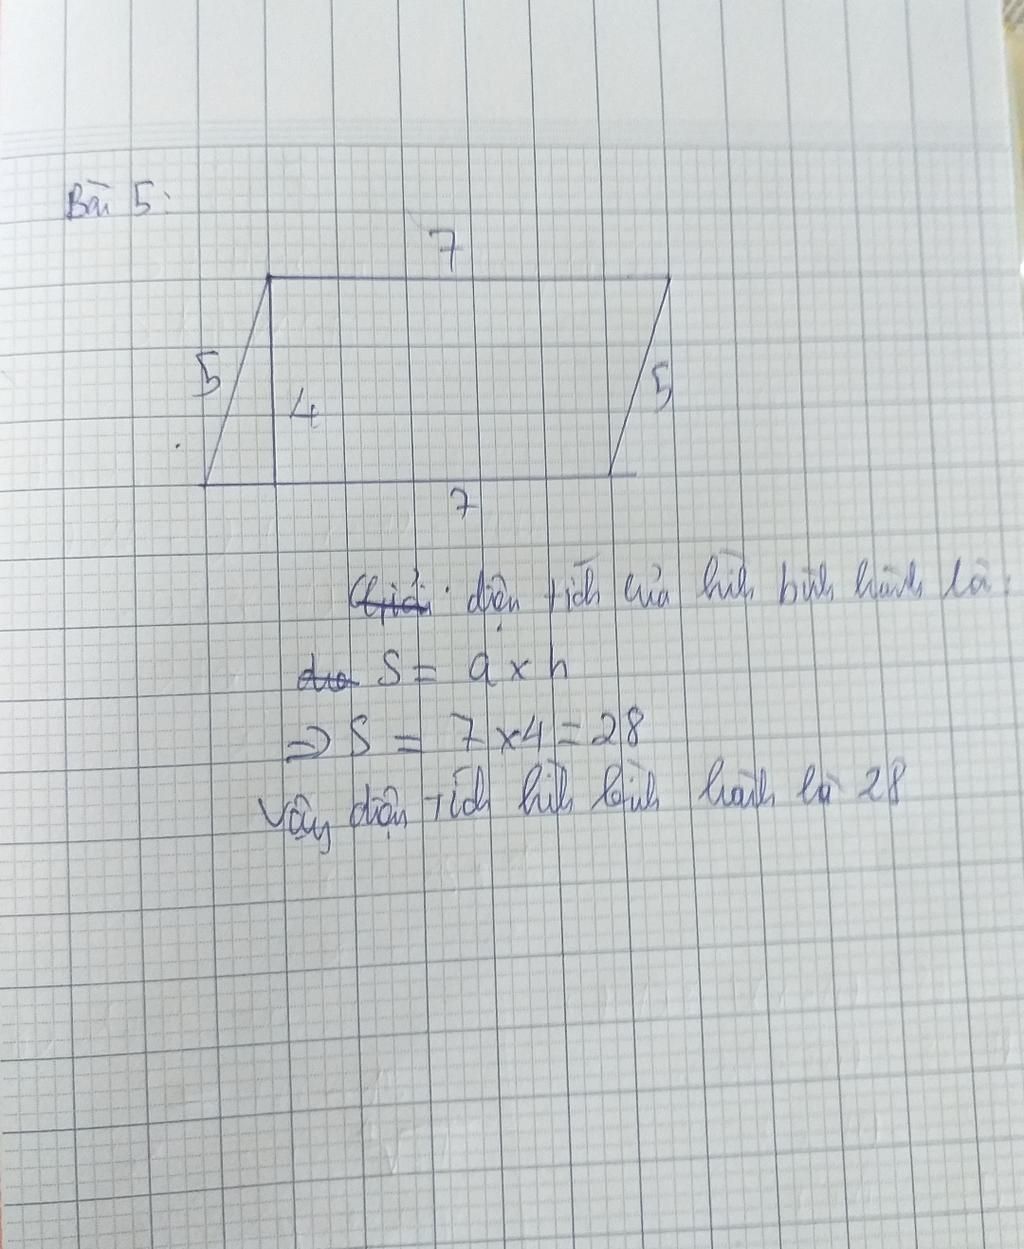 Bài 5:
7
5
4
5
7
Giải: diện tích của hình bình hành là:
S = a x h
=> S = 7 x 4 = 28
Vậy diện tích hình bình hành là 28